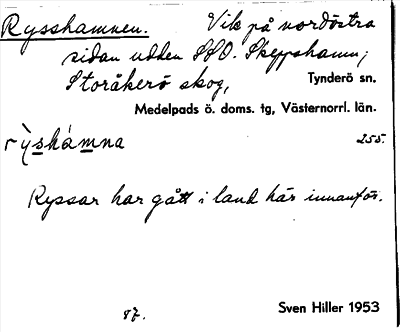 Rysshamnen. Vik på nordöstra
sidan udden SSO. Skeppshamn;
Storåkerö skog, Tynderö sn.
Medelpads ö. doms. tg, Västernorrl. län.
rỳshámna 255.
Ryssar har gått i land här innanför.
87.
Sven Hiller 1953